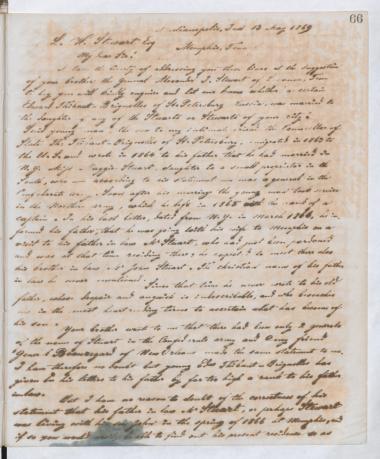 66
Indianapolis, Ind 13 May 1869
D. H. Stewart Esq
Memphis, Tenn
My dear Sir!
I take the liberty of addressing you these lines at the suggestion
of your brother the General Alexander P. Stewart of
to beg you will kindly enquire and let me know whether a certain
Edward Thibaut-Brignolles of St. Petersburg Russia, was married to
the daughter of any of the Stuarts or Stewarts of your city?
Said young man, the son to my friend the Counsellor of
State Thibaut-Brignolles of St. Petersburg, migrated in 1863 to
the U.S. and wrote in 1864 to his father that he had married in
N.Y. Miss Maggie Stuart, daughter to a proprietor in the
South, who according to his statement was a general in the
Confederate army. Soon after his marriage the young man took service
in the Northern army, which he left in 1865 with the rank of a
Captain. In his last letter, dated from N.Y. in March 1866, he in-
formed his father, that he was going with his wife to Memphis on a
visit to his father in law Mr Stuart, who had just been pardoned
and was at that time residing there; he expected to meet there also
his brother in law Mr John Stuart. The christian name of his father
in law he never mentioned.
Since that time he never wrote to his old
father, whose despair and anguish is indescribable, and who beseeches
me in the most heart rending terms to ascertain what has become of
his son.
Your brother wrote to me that there had been only 2 generals
of the name of Stuart in the Confederate army and my friend
General Beauregard of New Orleans made the same statement to me.
I have therefore no doubt but young Thibaut-Brignolles has
given in his letters to his father by far too high a rank to his father
in law.
But I have no reason to doubt of the correctness of his
statement that his father in law Mr Stuart, or perhaps Stewart
was living with his son John in the spring of 1866 at Memphis, and
if so you would easily be able to find out his present residence so as